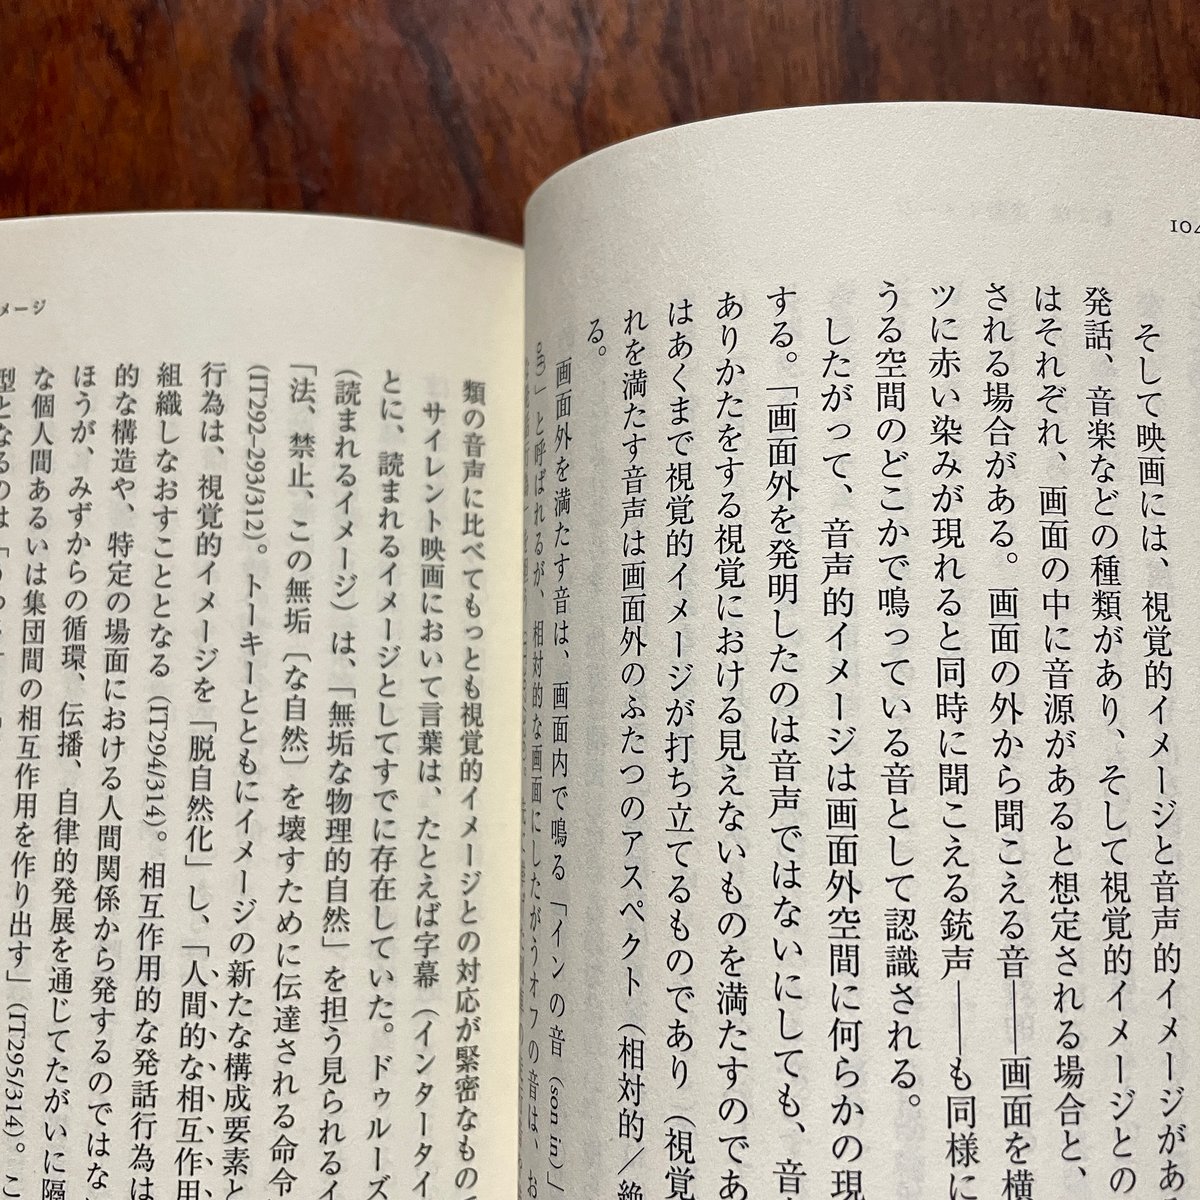 104
そして映画には、視覚的イメージと音声的イメージがあ
発話、音楽などの種類があり、そして視覚的イメージとの
はそれぞれ、画面の中に音源があると想定される場合と、
される場合がある。画面の外から聞こえる音——画面を横
ツに赤い染みが現れると同時に聞こえる銃声——も同様に
うる空間のどこかで鳴っている音として認識される。
したがって、音声的イメージは画面外空間に何らかの現
する。「画面外を発明したのは音声ではないにしても、音
ありかたをする視覚における見えないものを満たすのであ
はあくまで視覚的イメージが打ち立てるものであり（視覚
れを満たす音声は画面外のふたつのアスペクト（相対的／絶
る。
画面外を満たす音は、画面内で鳴る「インの音（son in）」
off）」と呼ばれるが、相対的な画面にしたがうオフの音は、お
メージ
類の音声に比べてもっとも視覚的イメージとの対応が緊密なもので
サイレント映画において言葉は、たとえば字幕（インタータイ
とに、読まれるイメージとしてすでに存在していた。ドゥルーズ
（読まれるイメージ）は、「無垢な物理的自然」を担う見られるイ
「法、禁止、この無垢〔な自然〕を壊すために伝達される命令
（IT292–293/312）。トーキーとともにイメージの新たな構成要素と
行為は、視覚的イメージを「脱自然化」し、「人間的な相互作用
組織しなおすこととなる（IT294/314）。相互作用的な発話行為は
的な構造や、特定の場面における人間関係から発するのではな
ほうが、みずからの循環、伝播、自律的発展を通じてたがいに隔
な個人間あるいは集団間の相互作用を作り出す」（IT295/314）。こ
型となるのは「